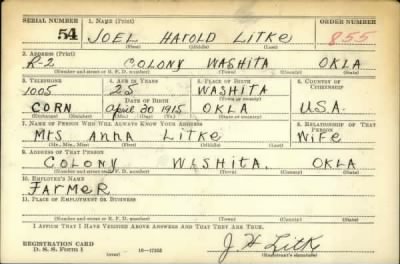 SERIAL NUMBER 1. NAME (Print) ORDER NUMBER
54 JOEL HAROLD LITKE 855
(First) (Middle) (Last)
2. ADDRESS (Print)
R-2 COLONY WASHITA OKLA
(Number and street or R. F. D. number) (Town) (County) (State)
3. TELEPHONE 4. AGE IN YEARS 5. PLACE OF BIRTH 6. COUNTRY OF CITIZENSHIP
1005 25 WASHITA
(Town or county)
DATE OF BIRTH
CORN April 20 1915 OKLA U.S.A.
(Exchange) (Number) (Mo.) (Day) (Yr.) (State or country)
7. NAME OF PERSON WHO WILL ALWAYS KNOW YOUR ADDRESS 8. RELATIONSHIP OF THAT PERSON
Mrs Anna LITKE WIFE
(Mr., Mrs., Miss) (First) (Middle) (Last)
9. ADDRESS OF THAT PERSON
COLONY WASHITA, OKLA
(Number and street or R. F. D. number) (Town) (County) (State)
10. EMPLOYER'S NAME
FARMER
11. PLACE OF EMPLOYMENT OR BUSINESS
(Number and street or R. F. D. number) (Town) (County) (State)
I AFFIRM THAT I HAVE VERIFIED ABOVE ANSWERS AND THAT THEY ARE TRUE.
REGISTRATION CARD
D. S. S. FORM 1 16-17105 J. H Litk
(Registrant's signature)